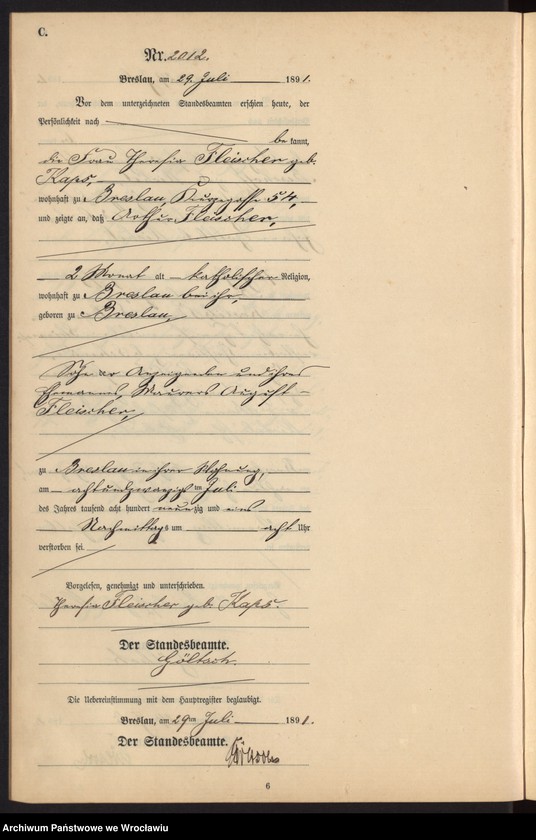 C.
Nr. 2012.
Breslau, am 29. Juli 1891.
Vor dem unterzeichneten Standesbeamten erschien heute, der
Persönlichkeit nach
be kannt,
die Frau Theresia Fleischer geb.
Kaps,
wohnhaft zu Breslau, 54,
und zeigte an, daß Arthur Fleischer,
2 Monat alt katholischer Religion,
wohnhaft zu Breslau bei ihr,
geboren zu Breslau,
Sohn der Anzeigenden und ihres
Ehemannes, Maurers August
Fleischer,
zu Breslau in ihrer Wohnung,
am achtundzwanzigsten Juli
des Jahres tausend acht hundert neunzig und eins
Nachmittags um acht Uhr
verstorben sei.
Vorgelesen, genehmigt und unterschrieben.
Theresia Fleischer geb. Kaps.
Der Standesbeamte.
Die Uebereinstimmung mit dem Hauptregister beglaubigt.
Breslau, am 29ten Juli 1891.
Der Standesbeamte.
6
Archiwum Państwowe we Wrocławiu